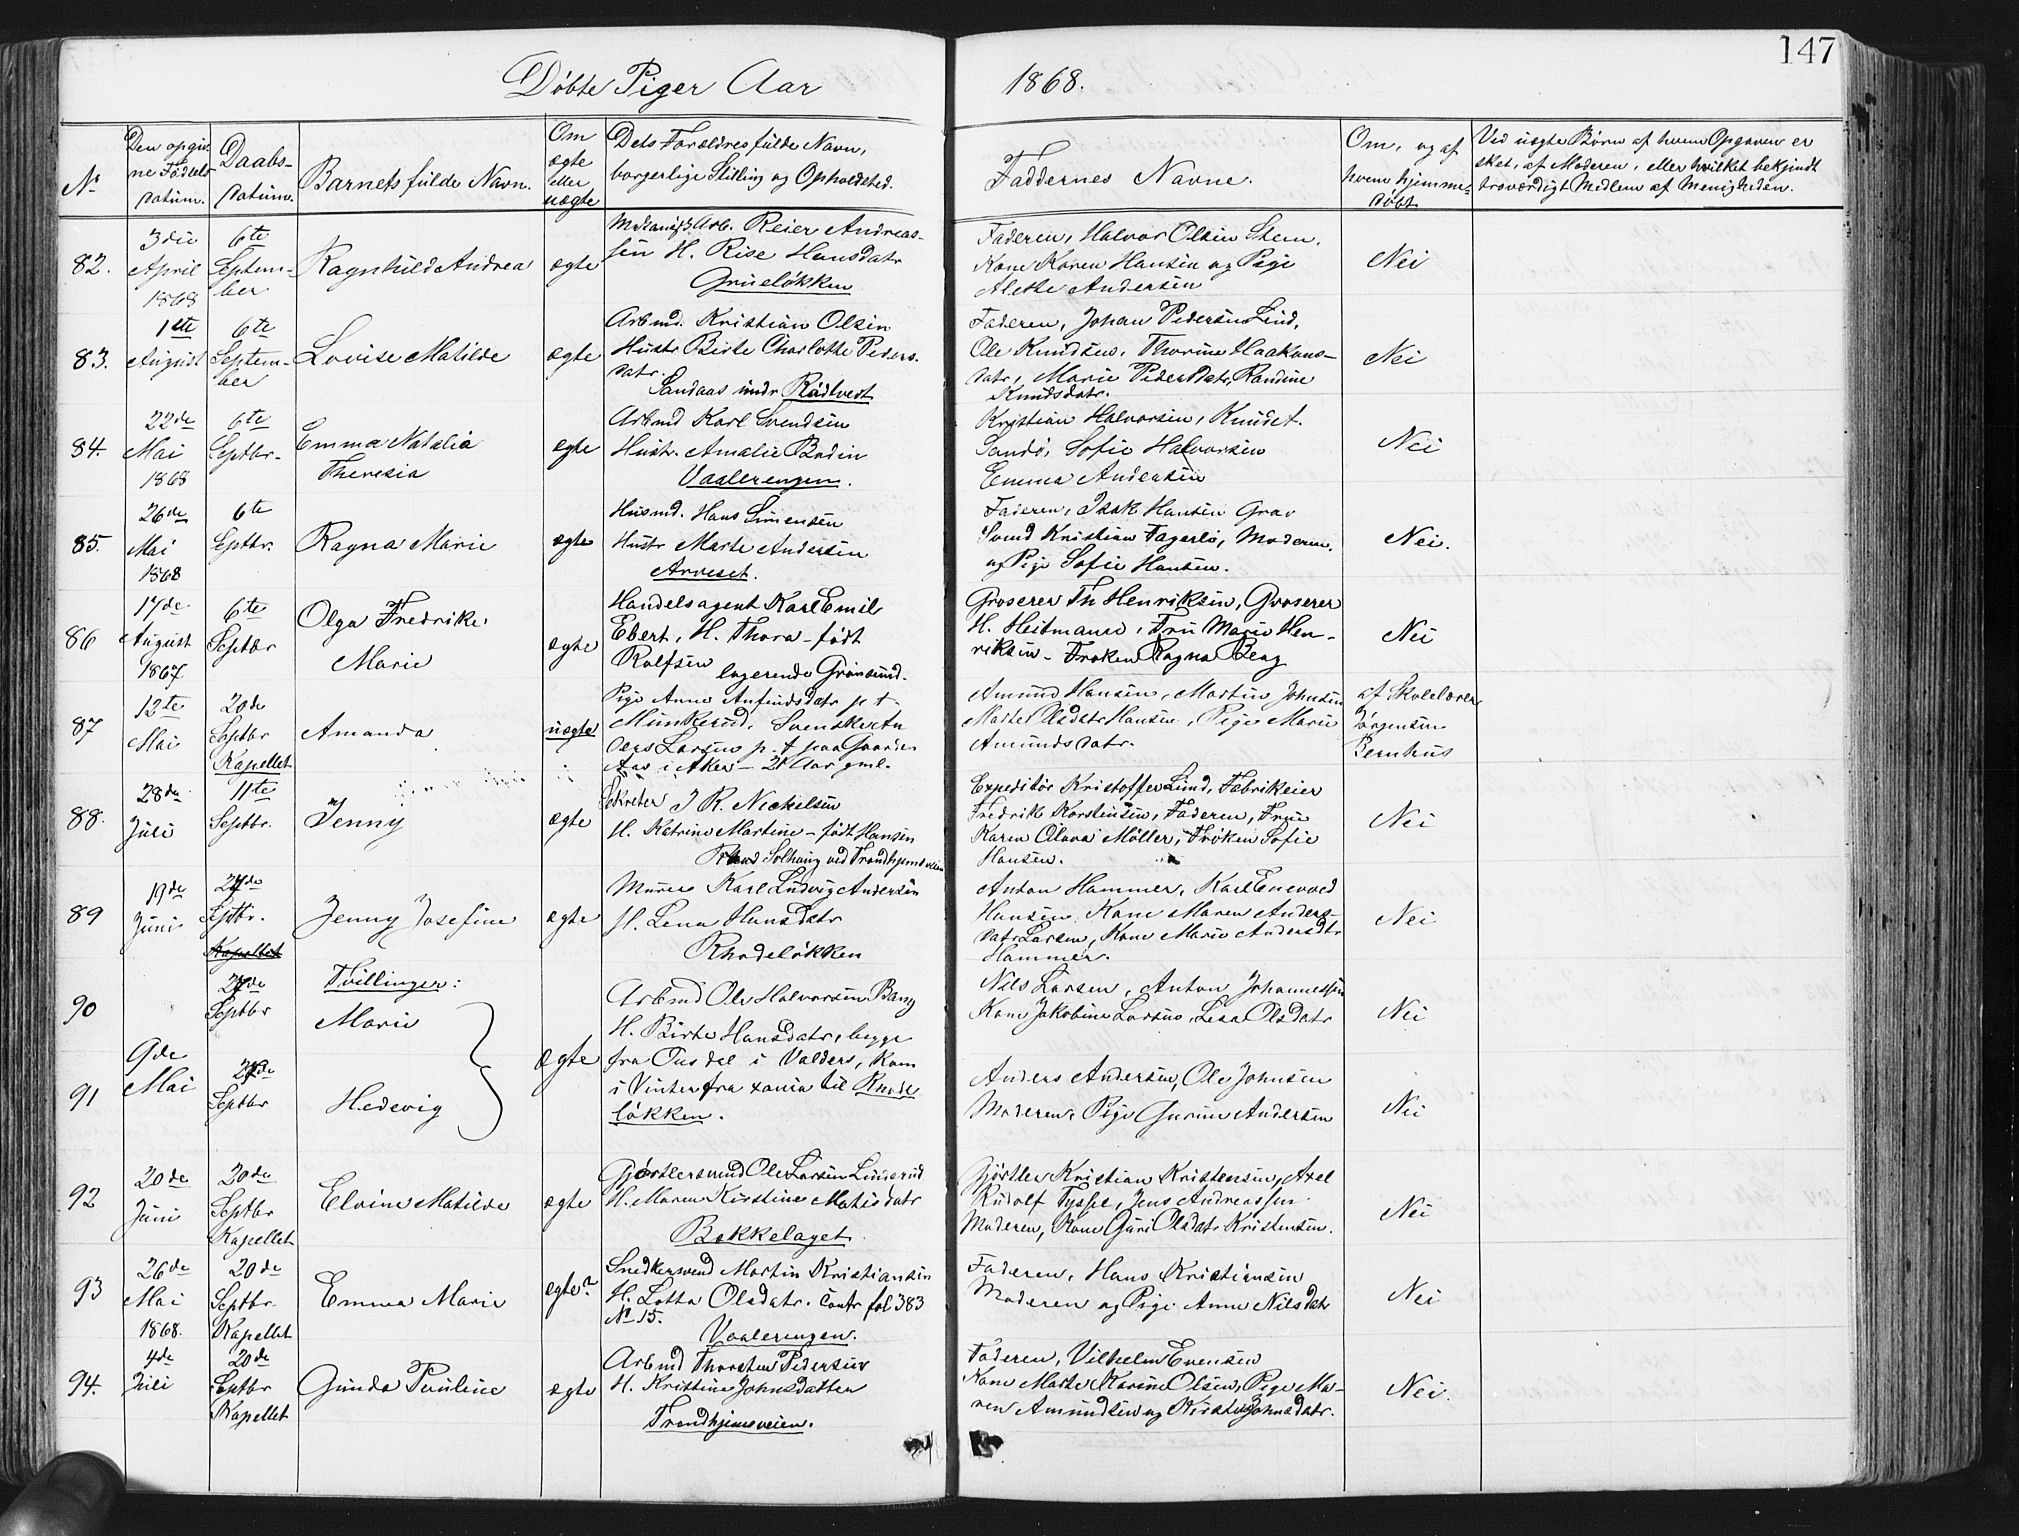 147
Døbte Piger Aar 1868.
No
Den opgivne Fødselsdatum.
Daabsdatum.
Barnets fulde Navn.
Om ægte eller uægte
Dets Forældres fulde Navn,
borgerlige Stilling og Opholdsted.
Faddernes Navne.
Om, og af
hvem hjemmedøbt
Ved uægte Børn af hvem Opgaven er
sket, af Moderen, eller hvilket bekjendt
troværdigt Medlem af Menigheden.
82.
3die
April
1868
6te
September
Ragnhild Andrea
ægte
Arb. Reier Andreassen
H. Rise Hansdatr
Grüneløkken
Faderen, Halvor Olsen
Kone Karen Hansen og Pige
Alethe Andersen
Nei
83.
1ste
August
6te
September
Lovise Matilde
ægte
Arbmd. Kristian Olsen
Hustr Birte Charlotte Pedersdatr.
Sandaas undr Rødtvedt
Faderen, Johan Pedersen Lund,
Ole Knudsen, Thorine Haakonsdatr,
Marie Pedersdatr, Randine
Knudsdatr.
Nei
84.
22de
Mai
1868
6te
Septbr.
Emma Natalia
Theresia
ægte
Arbmd Karl Svendsen
Hustr. Amalie Bodin
Vaalerengen.
Kristian Halvorsen, Knud
Sandö, Sofie Halvorsen
Emma Andersen
Nei
85.
26de
Mai
1868
6te
Septbr.
Ragna Marie
ægte
Husmd. Hans Simensen
Hustr Marte Andersen
Arveset.
Faderen, Isak Hansen Grav
Svend Kristian Fagerlö, Moderen,
og Pige Sofie Hansen.
Nei.
86
17de
August
1867
6te
Septbr
Olga Fredrike
Marie
ægte
Handelsagent Karl Emil
Ebert, H. Thora - født
Rolfsen
logerende Grönsund.
Groserer Th Henriksen, Groserer
H. Heitmann, Fru Marie Henriksen -
Frøken Ragna Berg
Nei
87
12te
Mai
20de
Septbr
Kapellet
Amanda
uægte
Pige Anne Anfindsdatr p t
Munkerud, Svenske An
ders Larsen p. t paa Gaarden
Aas i Aker - 21 Aar gml.
Amund Hansen, Martin Johnsen
Marte Olsdatr Hansen, Pige Marie
Amundsdatr.
af Skolelærer
Jørgensen
Bernhus
88.
28de
Juli
11te
Septbr.
Jenny
ægte
Sekretær J R. Nickelsen
H. Katrine Martine - født Hansen
Solhaug ved Trondhjemsveien
Expeditør Kristoffer Lund, Fabrikeier
Fredrik Karstensen, Faderen, Frue
Karen Olava Møller, Frøken Sofie
Hansen.
Nei
89
19de
Juni
27de
Septbr.
Kapellet
Jenny Josefine
ægte
Murer Karl Ludvig Andersen
H. Lena Hansdatr
Rhodeløkken
Anton Hammer, Karl Enevold
Hansen, Kone Maren Andersdatr
Larsen, Kone Marie Andersdtr
Hammer.
Nei
90
27de
Septbr
Tvillinger:
Marie
9de
Mai
ægte
Arbmd Ole Halvorsen Bang
H. Birte Hansdatr, begge
fra Ousdal i Valders, kom
i Vinter fra xania til Rhode
løkken.
Nils Larsen, Anton Johannessen
Kone Jakobine Larsen, Lisa Olsdatr
Nei
91
27de
Septbr
Hedevig
Anders Andersen, Ole Johnsen
Moderen, Pige Gurine Andersen
Nei
92
20de
Juni
20de
Septbr
Kapellet
Elvine Matilde
ægte
Gjørtlersvend Ole Larsen Linderud
H. Maren Kirstine Matisdatr
Bekkelaget
Gjörtler Kristian Kristensen, Axel
Rudolf Tysse, Jens Andreassen
Moderen, Kone Guri Olsdatr Kristensen.
Nei
93
26de
Mai
1868.
20de
Septbr.
Kapellet
Emma Marie
ægte?
Snedkersvend Martin Kristiansen
H. Lotta Olsdatr. Confr fol 383
No 15.
Vaalerengen.
Faderen, Hans Kristiansen
Moderen og Pige Anne Nilsdatr
Nei
94.
4de
Juli
20de
Septbr
Kapellet
Gunda Pauline
ægte
Arbmd Thorsten Pedersen
H. Kristine Johnsdatter
Trondhjemsveien.
Faderen, Vilhelm Evensen
Kone Marte Karine Olsen, Pige Maren
Amundsen og Kirstin Johnsdatr.
Nei.